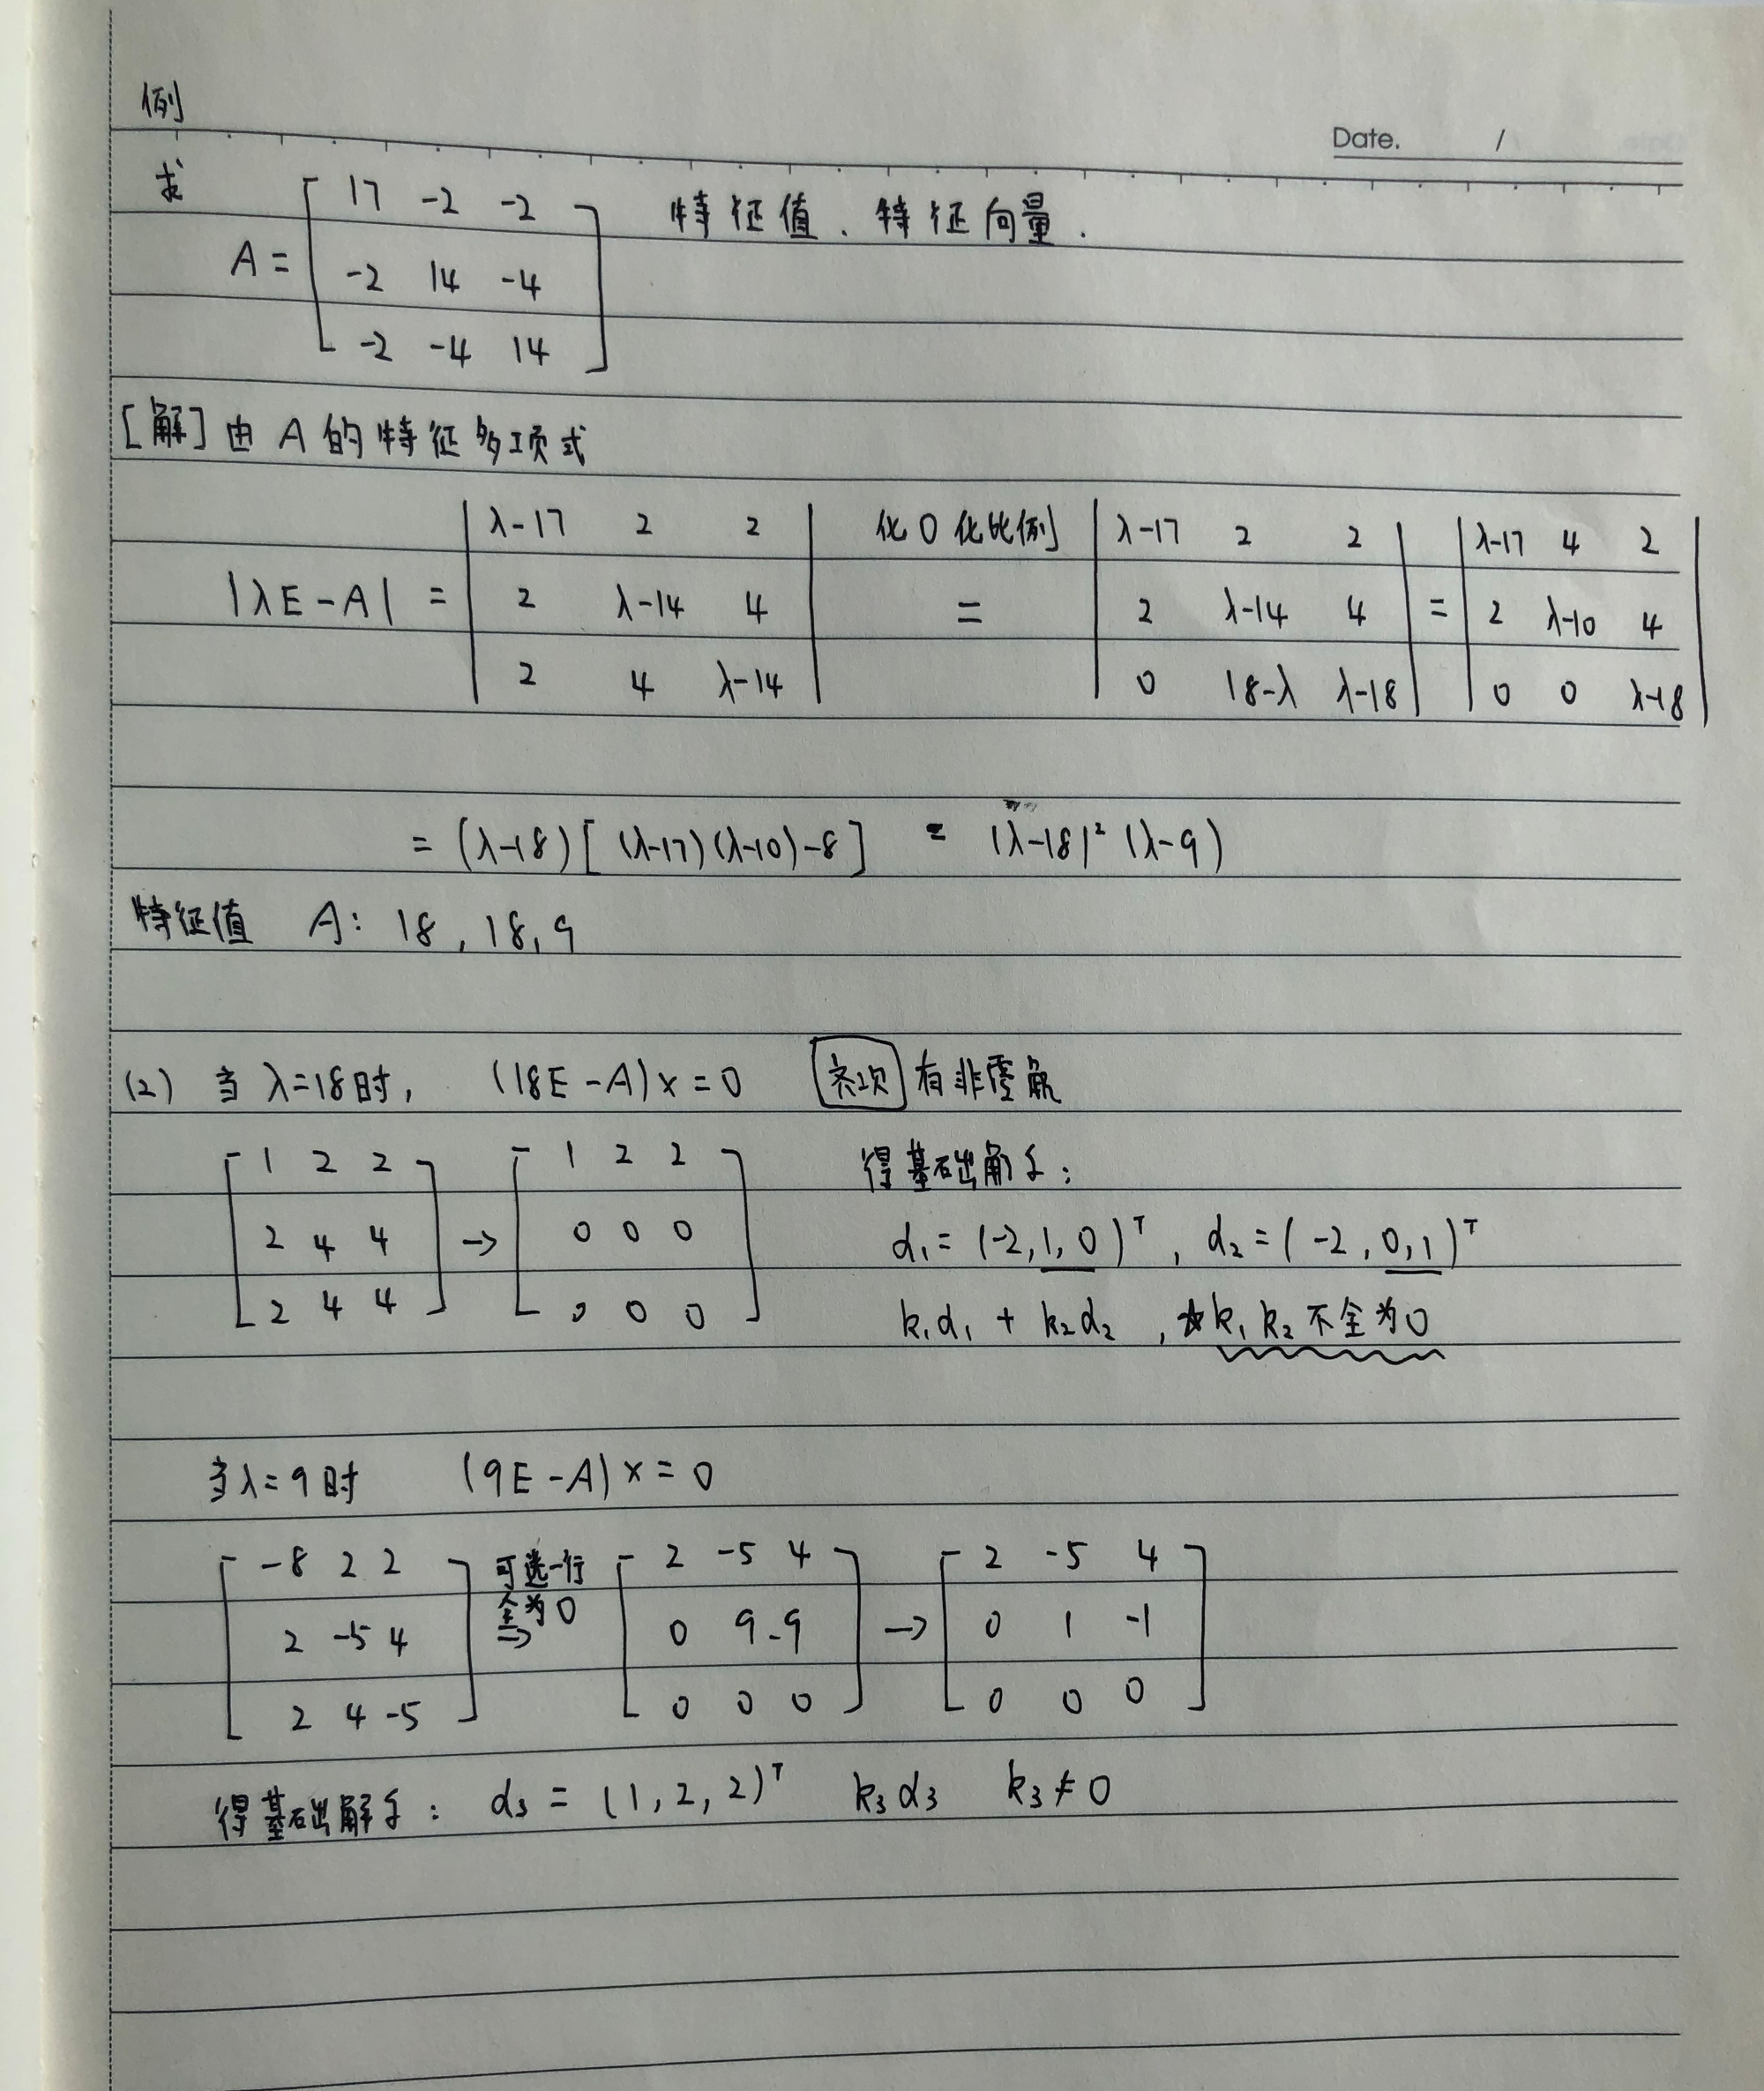 例
Date. /
求 A = [ 17 -2 -2 ; -2 14 -4 ; -2 -4 14 ] 特征值、特征向量.
[解] 由 A 的特征多项式
|λE-A| = | λ-17 2 2 ; 2 λ-14 4 ; 2 4 λ-14 | 化0化比例 = | λ-17 2 2 ; 2 λ-14 4 ; 0 18-λ λ-18 | = | λ-17 4 2 ; 2 λ-10 4 ; 0 0 λ-18 |
= (λ-18)[(λ-17)(λ-10)-8] = (λ-18)² (λ-9)
特征值 A: 18, 18, 9
(2) 当 λ=18时, (18E-A)x=0 齐次 有非零解
[ 1 2 2 ; 2 4 4 ; 2 4 4 ] → [ 1 2 2 ; 0 0 0 ; 0 0 0 ]
得基础解系:
α₁ = (-2,1,0)ᵀ, α₂ = (-2,0,1)ᵀ
k₁α₁ + k₂α₂, ☆k₁ k₂ 不全为0
当λ=9时 (9E-A)x=0
[ -8 2 2 ; 2 -5 4 ; 2 4 -5 ] 可选一行全为0 → [ 2 -5 4 ; 0 9 -9 ; 0 0 0 ] → [ 2 -5 4 ; 0 1 -1 ; 0 0 0 ]
得基础解系: α₃ = (1,2,2)ᵀ k₃α₃ k₃≠0